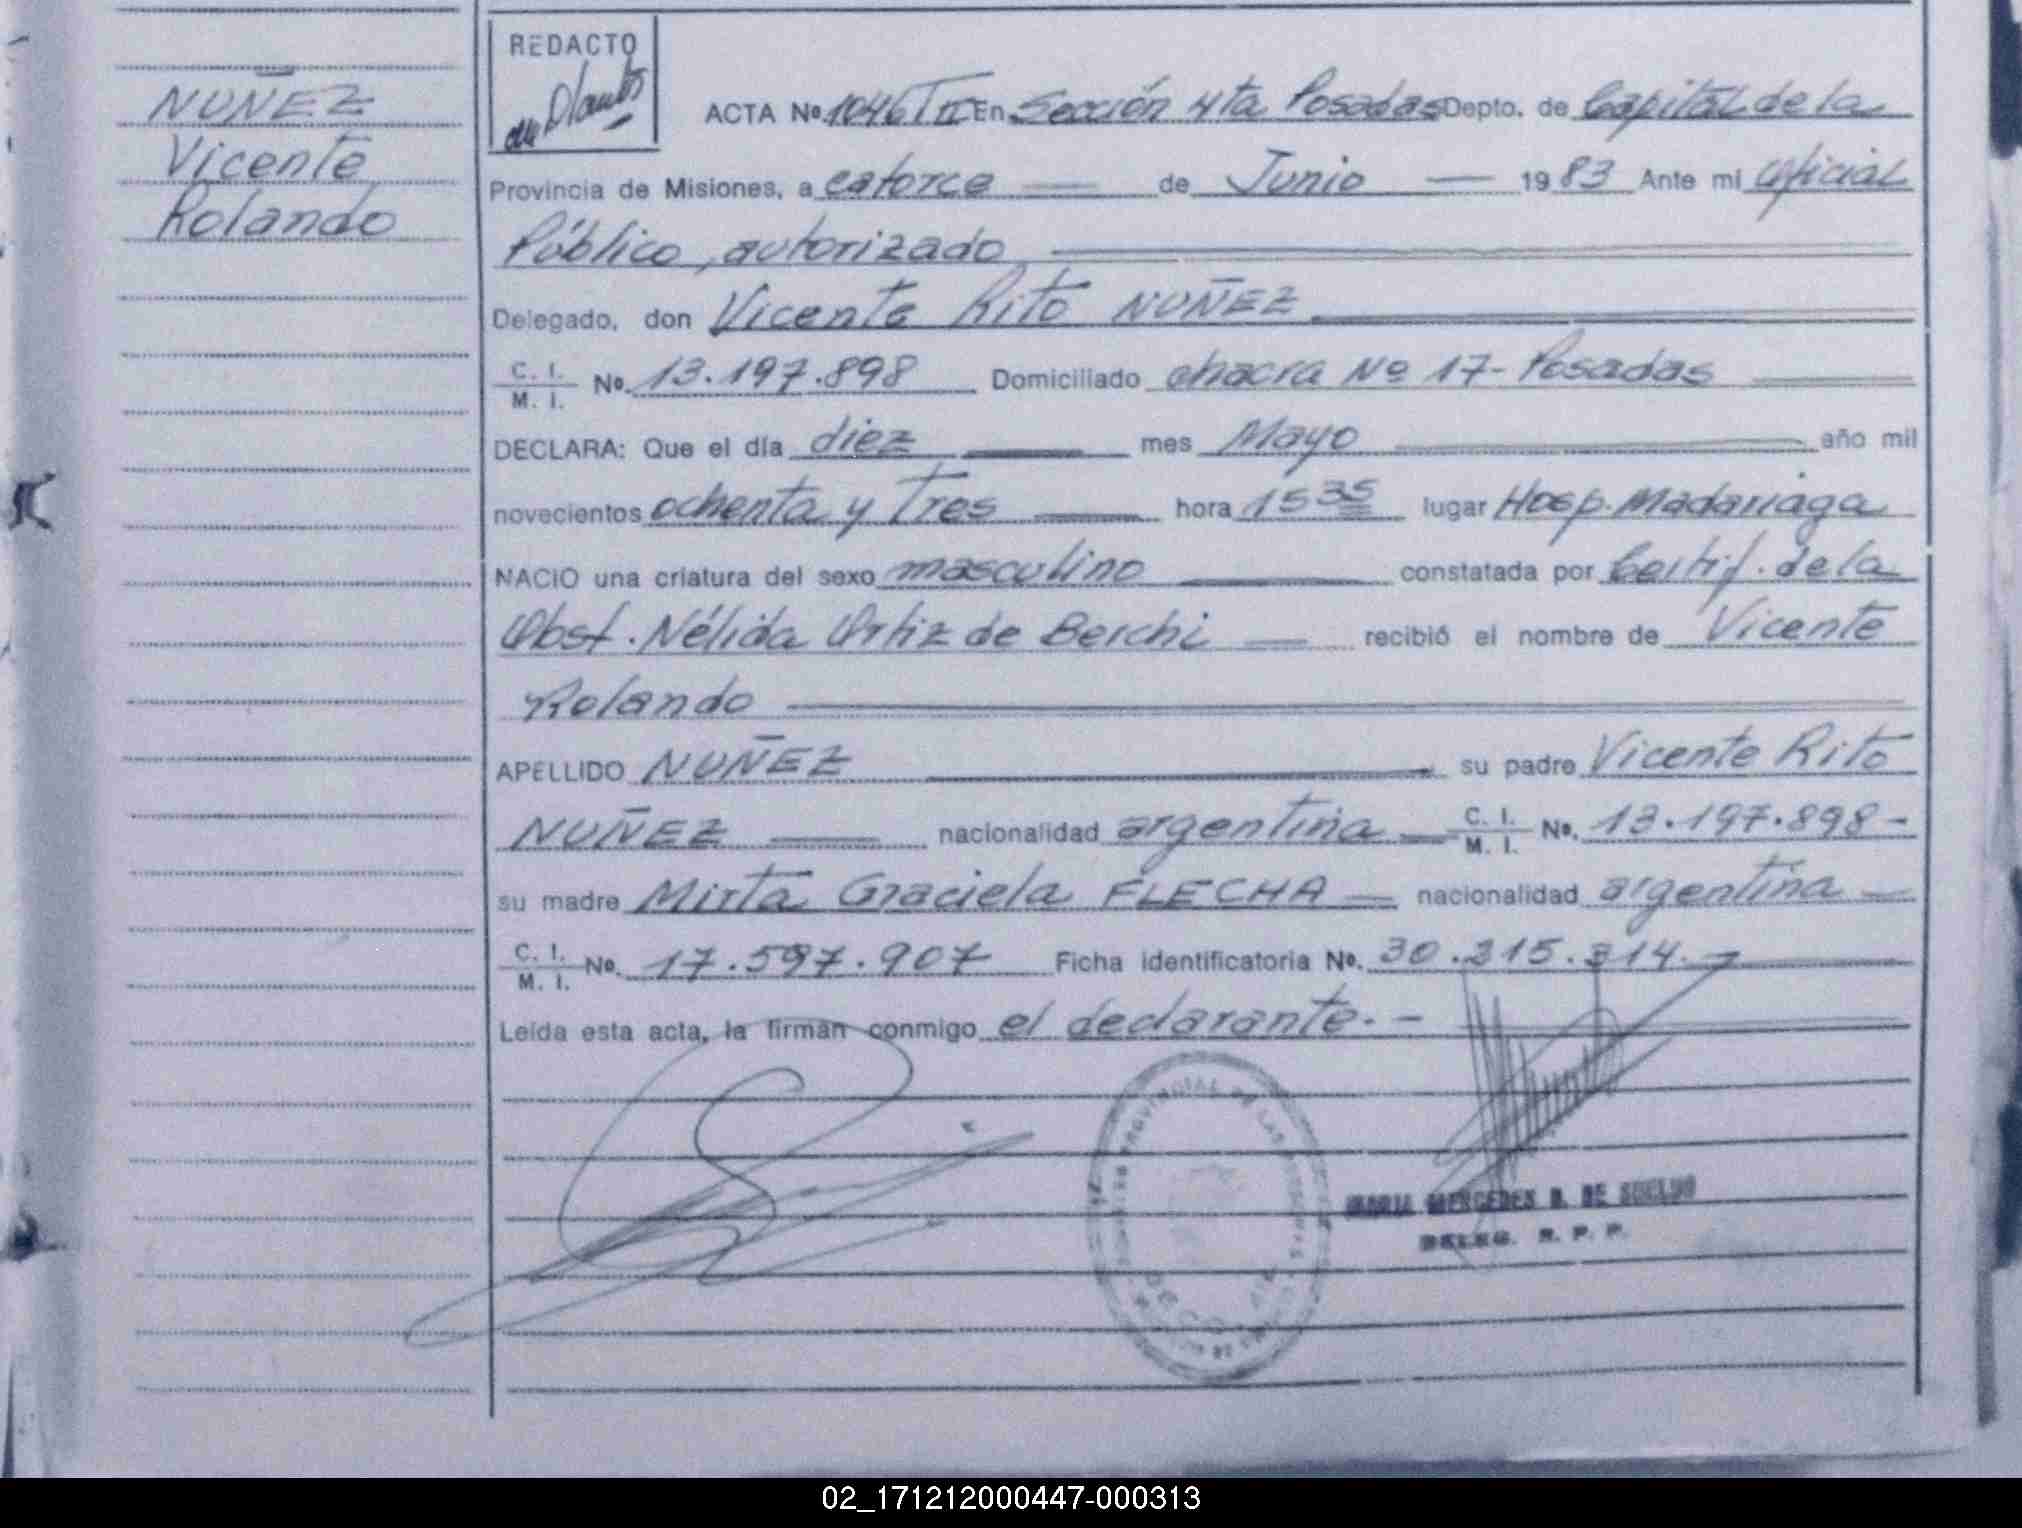 NUÑEZ
Vicente
Rolando
REDACTO
ACTA Nº 1046 T II En Sección 4ta Posadas Depto. de Capital de la
Provincia de Misiones, a catorce de Junio 1983 Ante mi Oficial
Público, autorizado
Delegado, don Vicente Rito NUÑEZ
C. I.
M. I. Nº. 13.197.898 Domiciliado chacra Nº 17 - Posadas
DECLARA: Que el día diez mes Mayo año mil
novecientos ochenta y Tres hora 15 35 lugar Hosp. Madariaga
NACIO una criatura del sexo masculino constatada por Certif. de la
Obst. Nélida Ortiz de Berchi recibió el nombre de Vicente
Rolando
APELLIDO NUÑEZ su padre Vicente Rito
NUÑEZ nacionalidad argentina C. I.
M. I. Nº. 13.197.898 -
su madre Mirta Graciela FLECHA nacionalidad argentina
C. I.
M. I. Nº. 17.597.907 Ficha identificatoria Nº. 30.315.314.-
Leída esta acta, la firman conmigo el declarante. -
PROVINCIAL DE LAS PERSONAS
MARIA MERCEDES B. DE
DELEG. R. P. P.
02_171212000447-000313